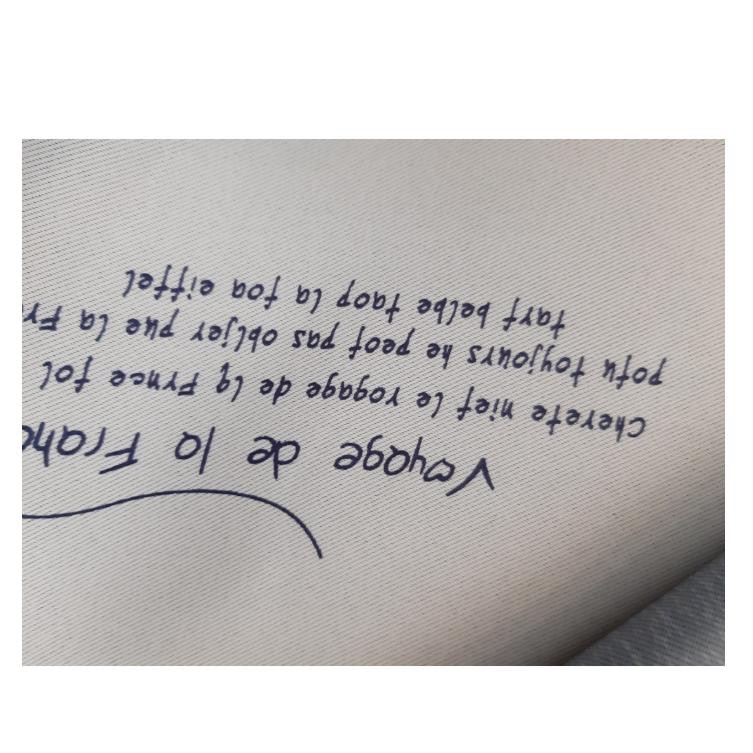 Voyage de la Franc
Cherete nief Le rogage de lq Frnce fol
pofu toyjours he peof pas obljer pue la Fr
tarf belbe taop la foa eiffel